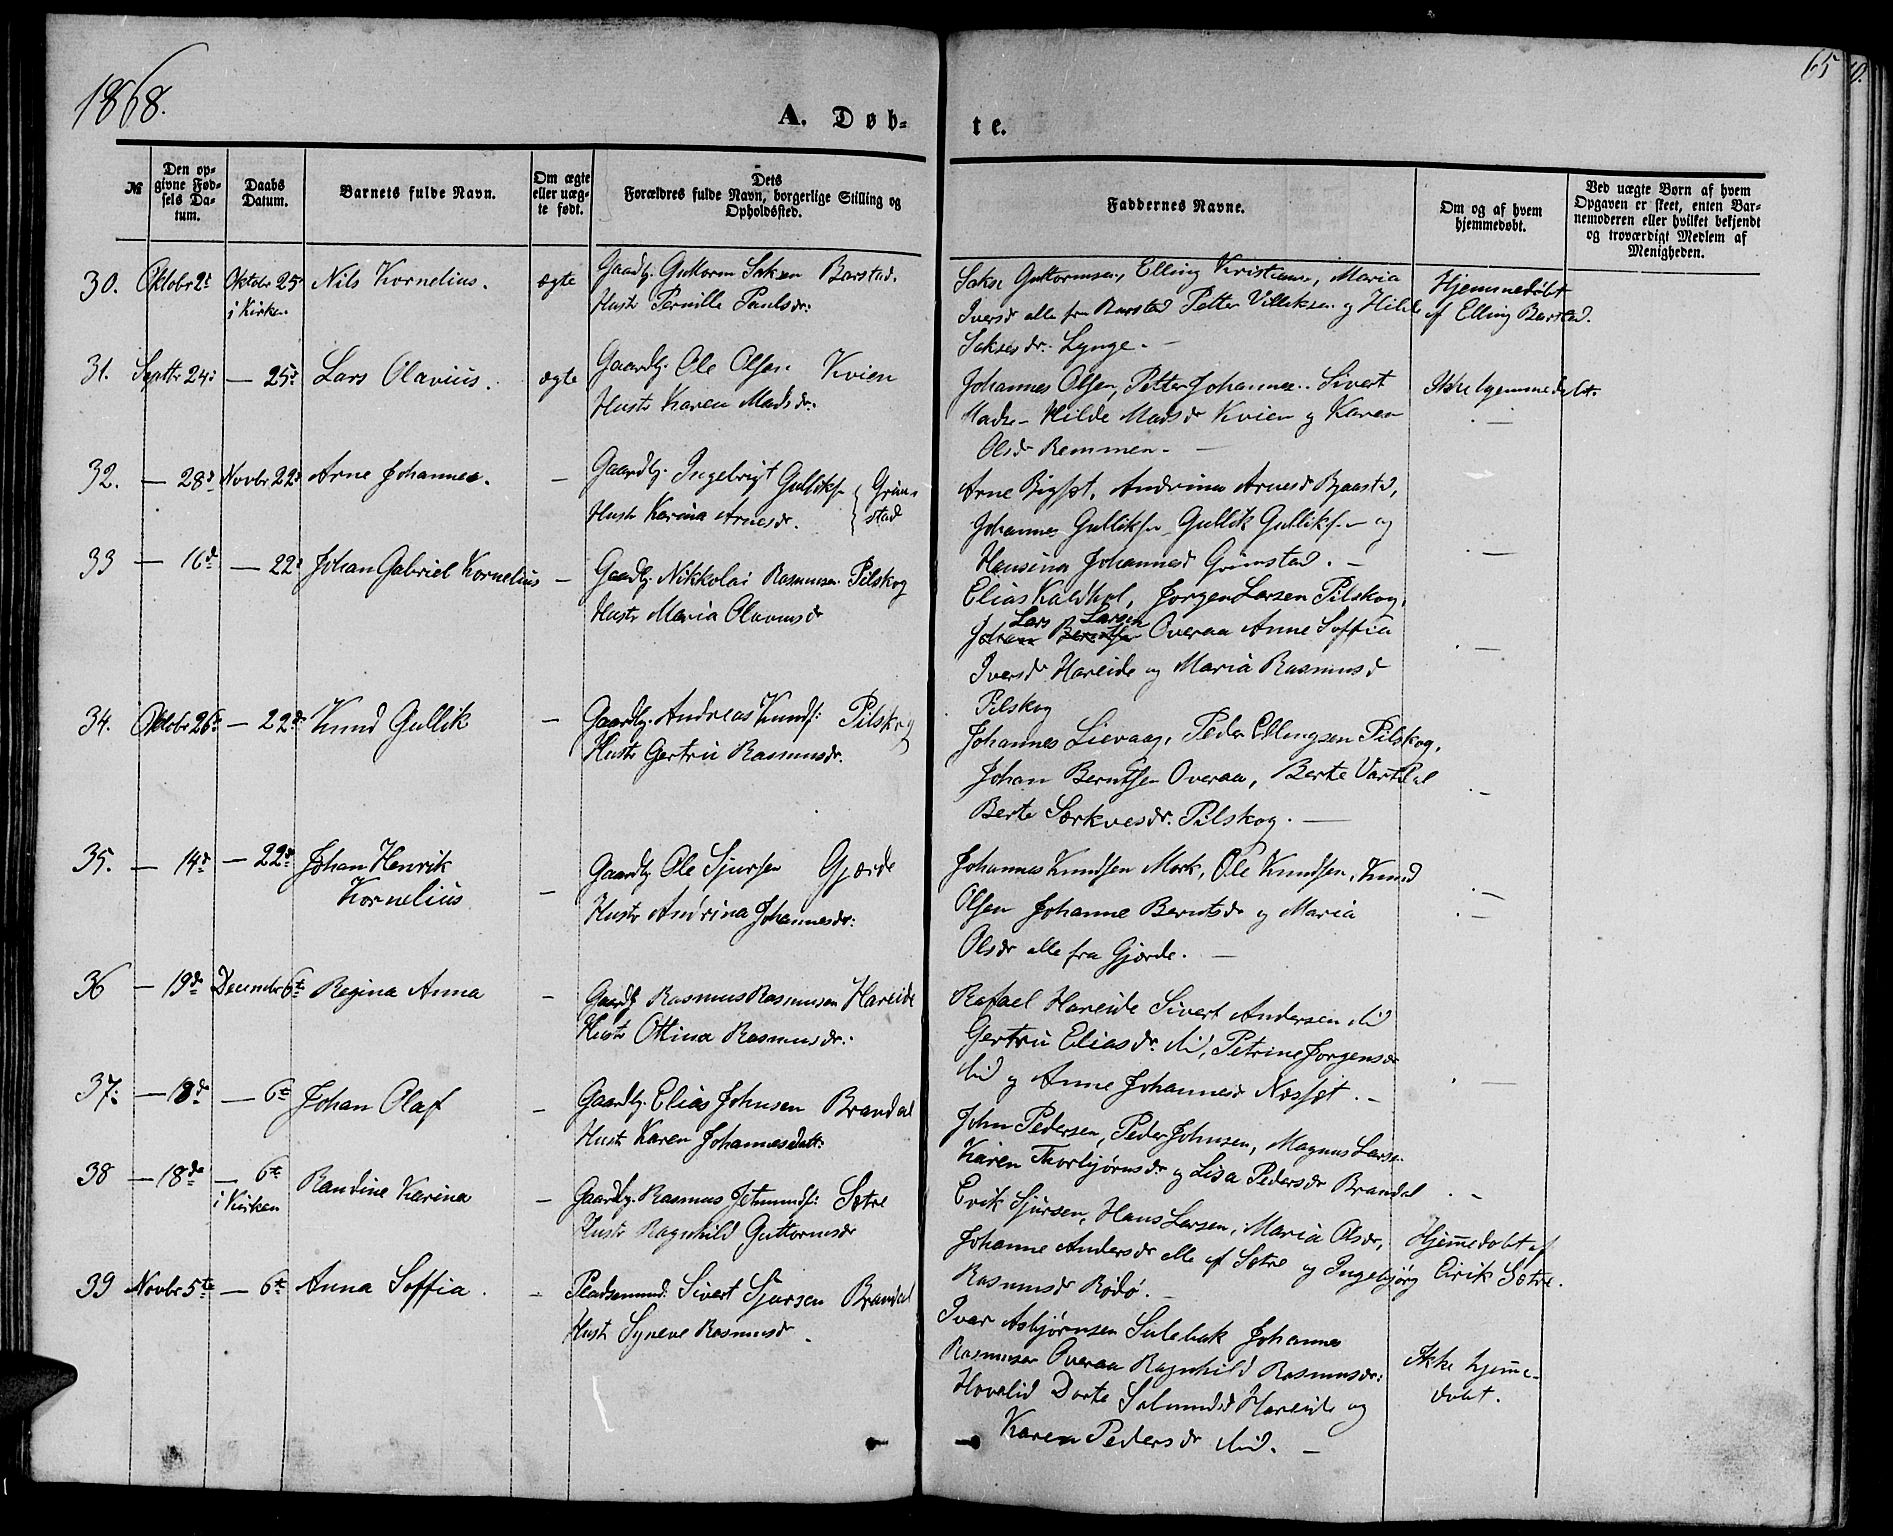 1868.
65
A. Døb-
te.
№
Den op-
givne Fød-
sels Da-
tum.
Daabs
Datum.
Barnets fulde Navn.
Om ægte
eller uæg-
te født.
Dets
Forældres fulde Navn, borgerlige Stilling og
Opholdssted.
Faddernes Navne.
Om og af hvem
hjemmedøbt.
Ved uægte Børn af hvem
Opgaven er skeet, enten Bar-
nemoderen eller hvilket bekjendt
og troværdigt Medlem af
Menigheden.
30. Oktobr 2d Oktobr 25d Nils Kornelius. ægte Gaardbr. Guttorm Saksen Barstad.
i Kirken Hustr Pernille Paulsdr:
Sakse Guttormsen, Elling Kristianse, Maria Hjemmedøbt
Iversdr alle fra Barstad Petter Villiksen og Hilde af Elling Barstad.
Saksesdr. Lynge. —
31. Septbr 24d — 25d Lars Olavius. ægte Gaardbr. Ole Olsen Kvien
Hustr Karen Madsdr.
Johannes Olsen, Petter Johannes. Sivert Ikke hjemmedøbt.
Madse — Hilde Madsdr Kvien og Karen —
Olsdr Remmen. —
32. — 28d Novbr 22d Arne Johannes. — Gaardbr. Ingebrigt Gulliks Grim-
Hustr Karina Arnesdr. stad
Arne Bigset, Andrina Arnesdr Bjaastad,
Johannes Gulliks Gullik Gulliks og
Hansina Johannesd Grimstad. — —
33 — 16d — 22d Johan Gabriel Kornelius — Gaardbr. Nikkolai Rasmusen Pilskog
Hustr Maria Olavusdr
Elias Kaldhol, Jørgen Larsen Pilskog,
Lars Larsen
Johan Berntsen Overaa Anne Soffia —
Iversdr Hareide og Maria Rasmusd
Pilskog
34. Oktobr 26d — 22d Knud Gullik — Gaardbr. Andreas Knuds: Pilskog
Hustr Gertru Rasmusdr.
Johannes Lievaag, Peder Ellingsen Pilskog,
Johan Berntsen Overaa, Berte Vartdal —
Berte Sørkvesdr. Pilskog. —
35. — 14d — 22d Johan Henrik — Gaardbr Ole Sjursen Gjerde
Kornelius Hustr Andrina Johannesdr:
Johannes Knudsen Mork, Ole Knudsen, Knud —
Olsen Johanne Berntsdr og Maria —
Olsdr alle fra Gjerde. —
36 — 19de Decembr 6te Regina Anna — Gaardbr Rasmus Rasmusen Hareide
Hustr Ottina Rasmusdr.
Rafael Hareide Sivert Andersen Lid
Gertru Eliasdr. Lid, Petrine Jørgensdr
Lid og Anne Johannesd Næsset. — —
37. — 18de — 6te Johan Olaf — Gaardbr. Elias Johnsen Brandal
Hustr Karen Johannesdatt:
John Pedersen, Peder Johnsen, Magnus Larse
Karen Thorbjørnsdr og Lisa Pedersdr Brandal —
38 — 18de — 6te Randine Karina — Gaardbr. Rasmus Jetmunds: Sætre
i Kirken Hustr Ragnhild Guttormsdr
Erik Sjursen, Hans Larsen, Maria Olsdr, Hjemedøbt af
Johanne Andersdr alle af Sætre og Ingebjørg Eirik Sætre.
Rasmusdr Rødø. —
39 Novbr 5te — 6te Anna Soffia. — Pladsmand. Sivert Sjursen Brandal
Hustr Syneve Rasmusdr.
Ivar Asbjørnsen Sulebak Johannes
Rasmusen Overaa Ragnhild Rasmusdr: Ikke hjeme-
Hovslid Dorte Salmundsd Hareide og døbt.
Karen Pedersdr Lid. —